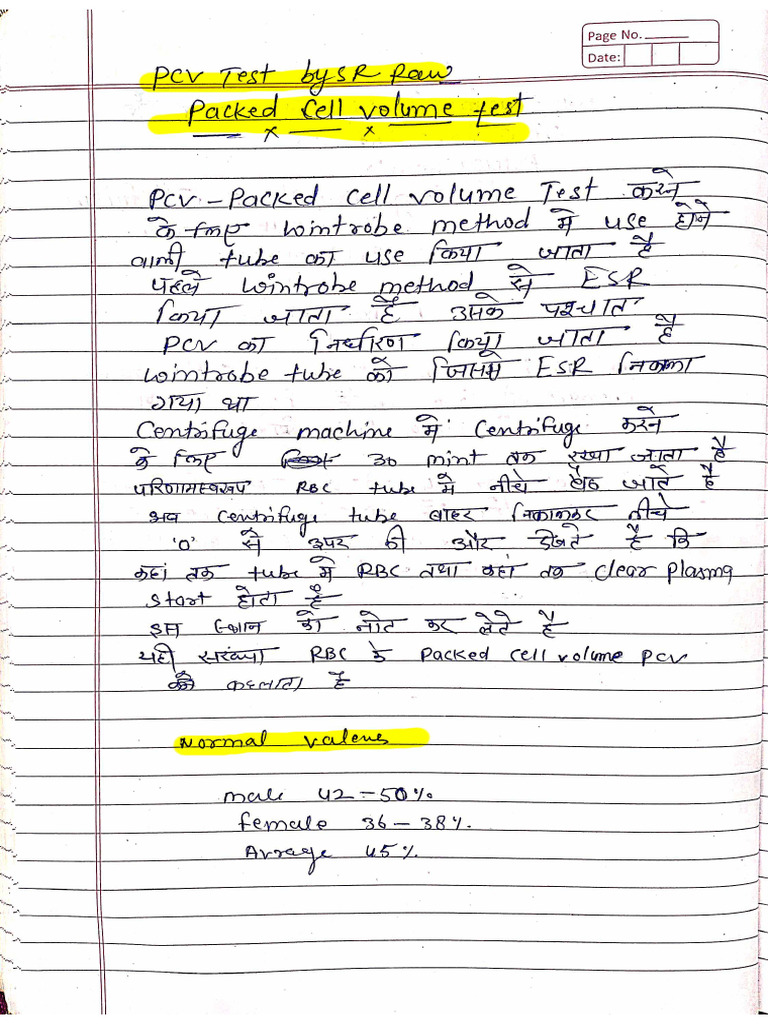 Page No.
Date:
PCV Test by SR Raw
Packed Cell volume test
PCV - Packed cell volume Test करने
के लिए wintrobe method मे use होने
वाली tube का use किया जाता है
पहले wintrobe method से ESR
किया जाता है उसके पश्चात
PCV का निर्धारण किया जाता है
wintrobe tube को जिसमे ESR निकाला
गया था
Centrifuge machine में centrifuge करने
के लिए 30 mint तक रखा जाता है
परिणामस्वरूप RBC tube मे नीचे बैठ जाते है
अब centrifuge tube बाहर निकालकर नीचे
'0' से उपर की और देखते है कि
कहां तक tube मे RBC तथा कहां तक clear plasma
start होता है
इस स्थान को नोट कर लेते है
यही संख्या RBC के Packed cell volume PCV
कहलाता है
Normal valeus
male 42-50%
female 36-38%.
Avrage 45%